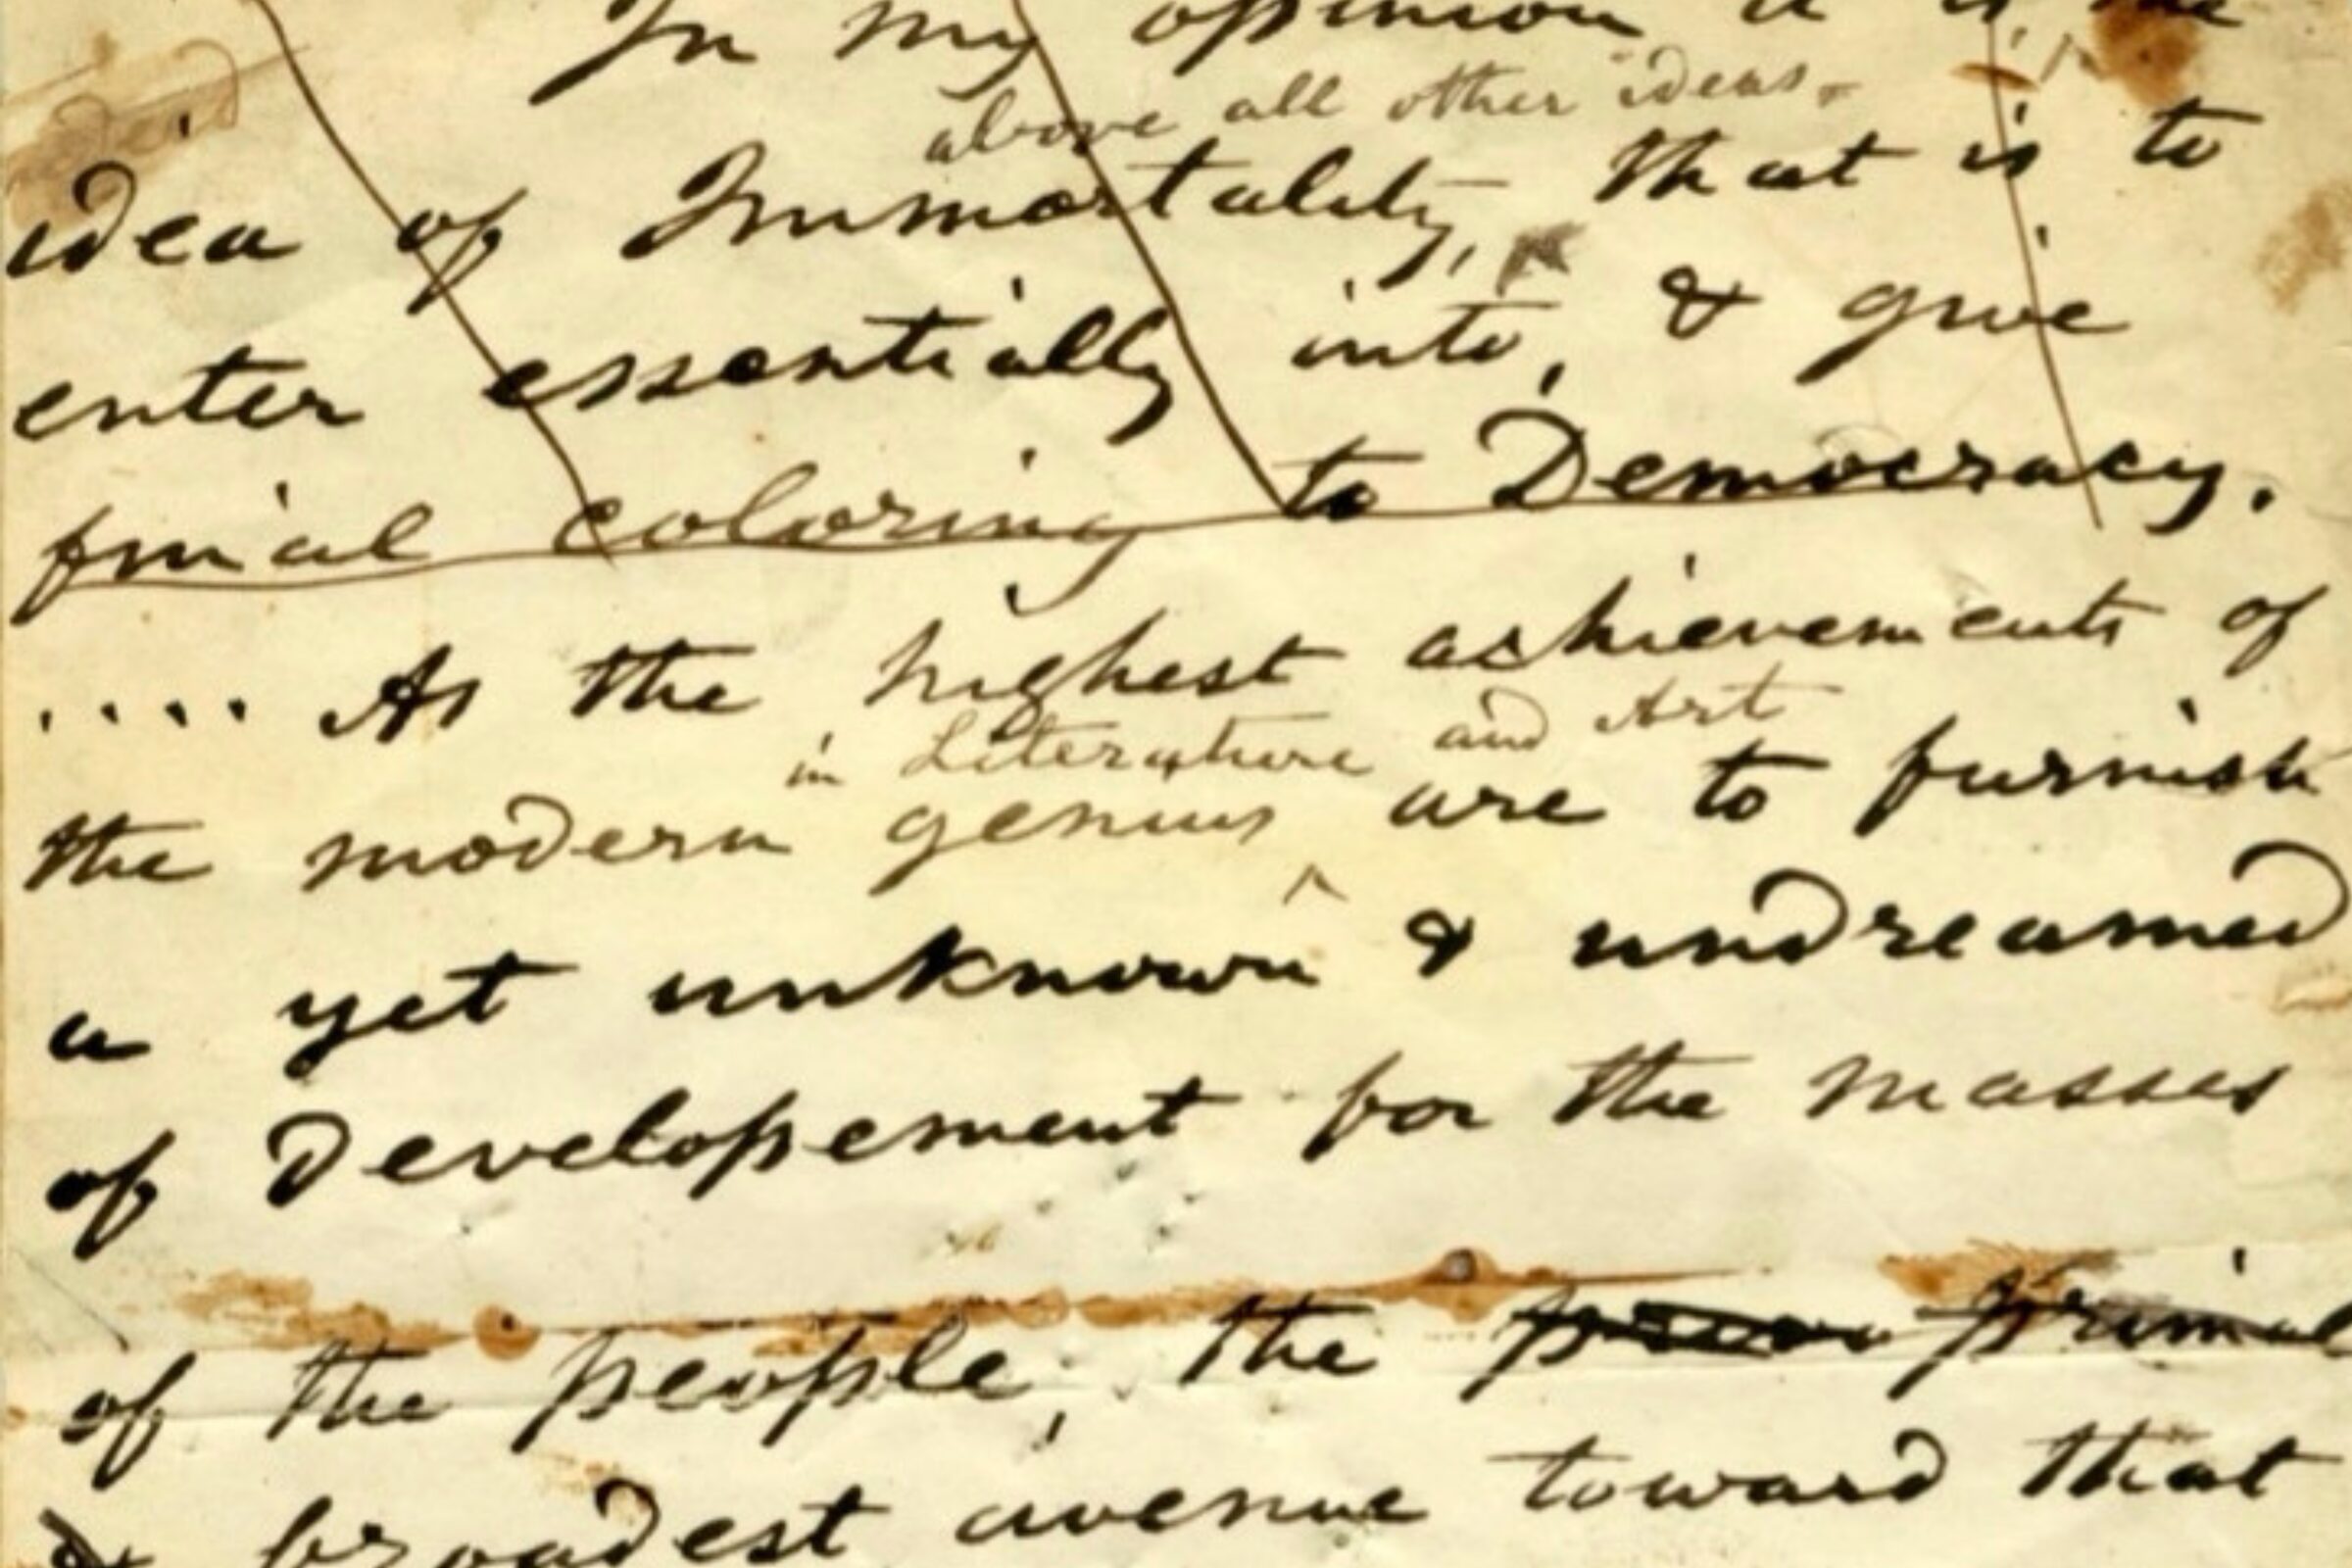 In my opinion it is the
above all other ideas,
idea of Immortality, that is to
enter essentially into, & give
final coloring to Democracy.
.... As the highest achievements of
in Literature and Art
the modern genius are to furnish
a yet unknown & undreamed
of developement for the masses
of the people, the primal
& broadest avenue toward that